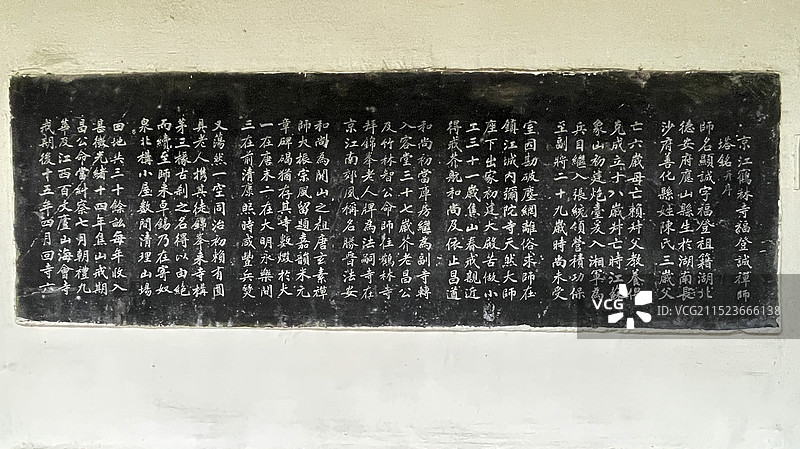 京江觀林寺福登誠禪師
塔銘并序
師名顯誠字福登祖籍湖北
德安府應山縣生於湖南長
沙府善化縣姓陳氏三歲父
亡六歲母亡賴叔父教養
成立十八歲叔亡時江
象山初建炮臺爰入湘軍為
兵目繼入張統領營積功保
至副將二十九歲時尚未受
室因勘破塵網離俗求師在
鎮江城內彌陀寺天然大師
座下出家初建大殿苦做小
工三十一歲焦山春戒親近
得戒芥航和尚及依止昌道
和尚初當庫房繼為副寺轉
入容堂三十七歲芥老昌公
及竹林智公命師住鶴林寺
拜錦峯老人禪為法嗣寺在
京江南郊風稱名勝晉法安
和尚為開山之祖唐玄素禪
師大振宗風留題嘉韻米元
章碑碣猶存其寺數燬於火
一在唐末二在大明永樂間
三在前清康熙時咸豐兵燹
又蕩然一空同治初賴有圓
具老人携其徒錦峯來寺構
茅三椽古刹之名得以由絕
而續至師來卓錫乃在寄奴
泉北構小屋數間清理山場
田地共三十餘畝每年收入
甚微光緒十四年焦山戒期
昌公命當糾察七月朝禮九
華及江西百丈廬山海會寺
戒期後十五年四月回寺六
VCG
视觉中国
ID: VCG211523666138